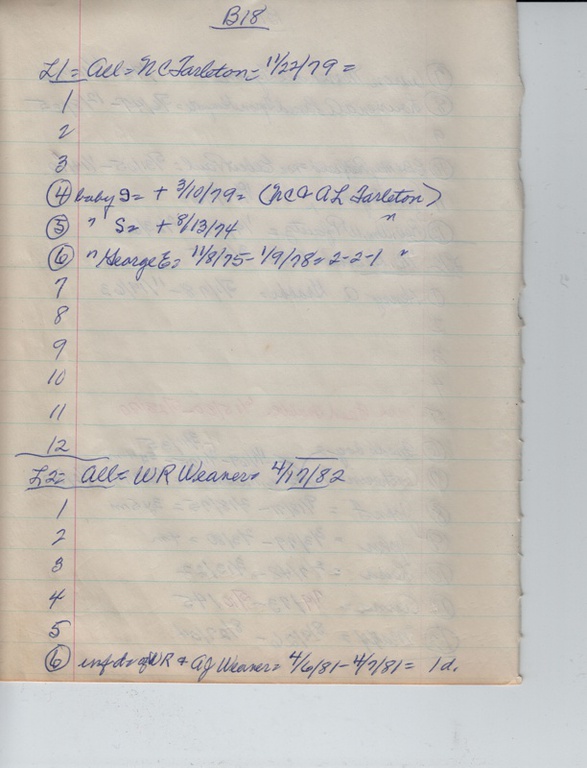 B18
L1 = All = N C Tarleton = 11/22/79 =
1
2
3
4 baby D = + 3/10/79 = (NC & AL Tarleton)
5 " S = + 8/13/74 "
6 " George E = 11/8/75 - 1/9/78 = 2-2-1 "
7
8
9
10
11
12
L2 = All = WR Weaner = 4/17/82
1
2
3
4
5
6 inf d of WR & AJ Weaner = 4/6/81 - 4/7/81 = 1d.